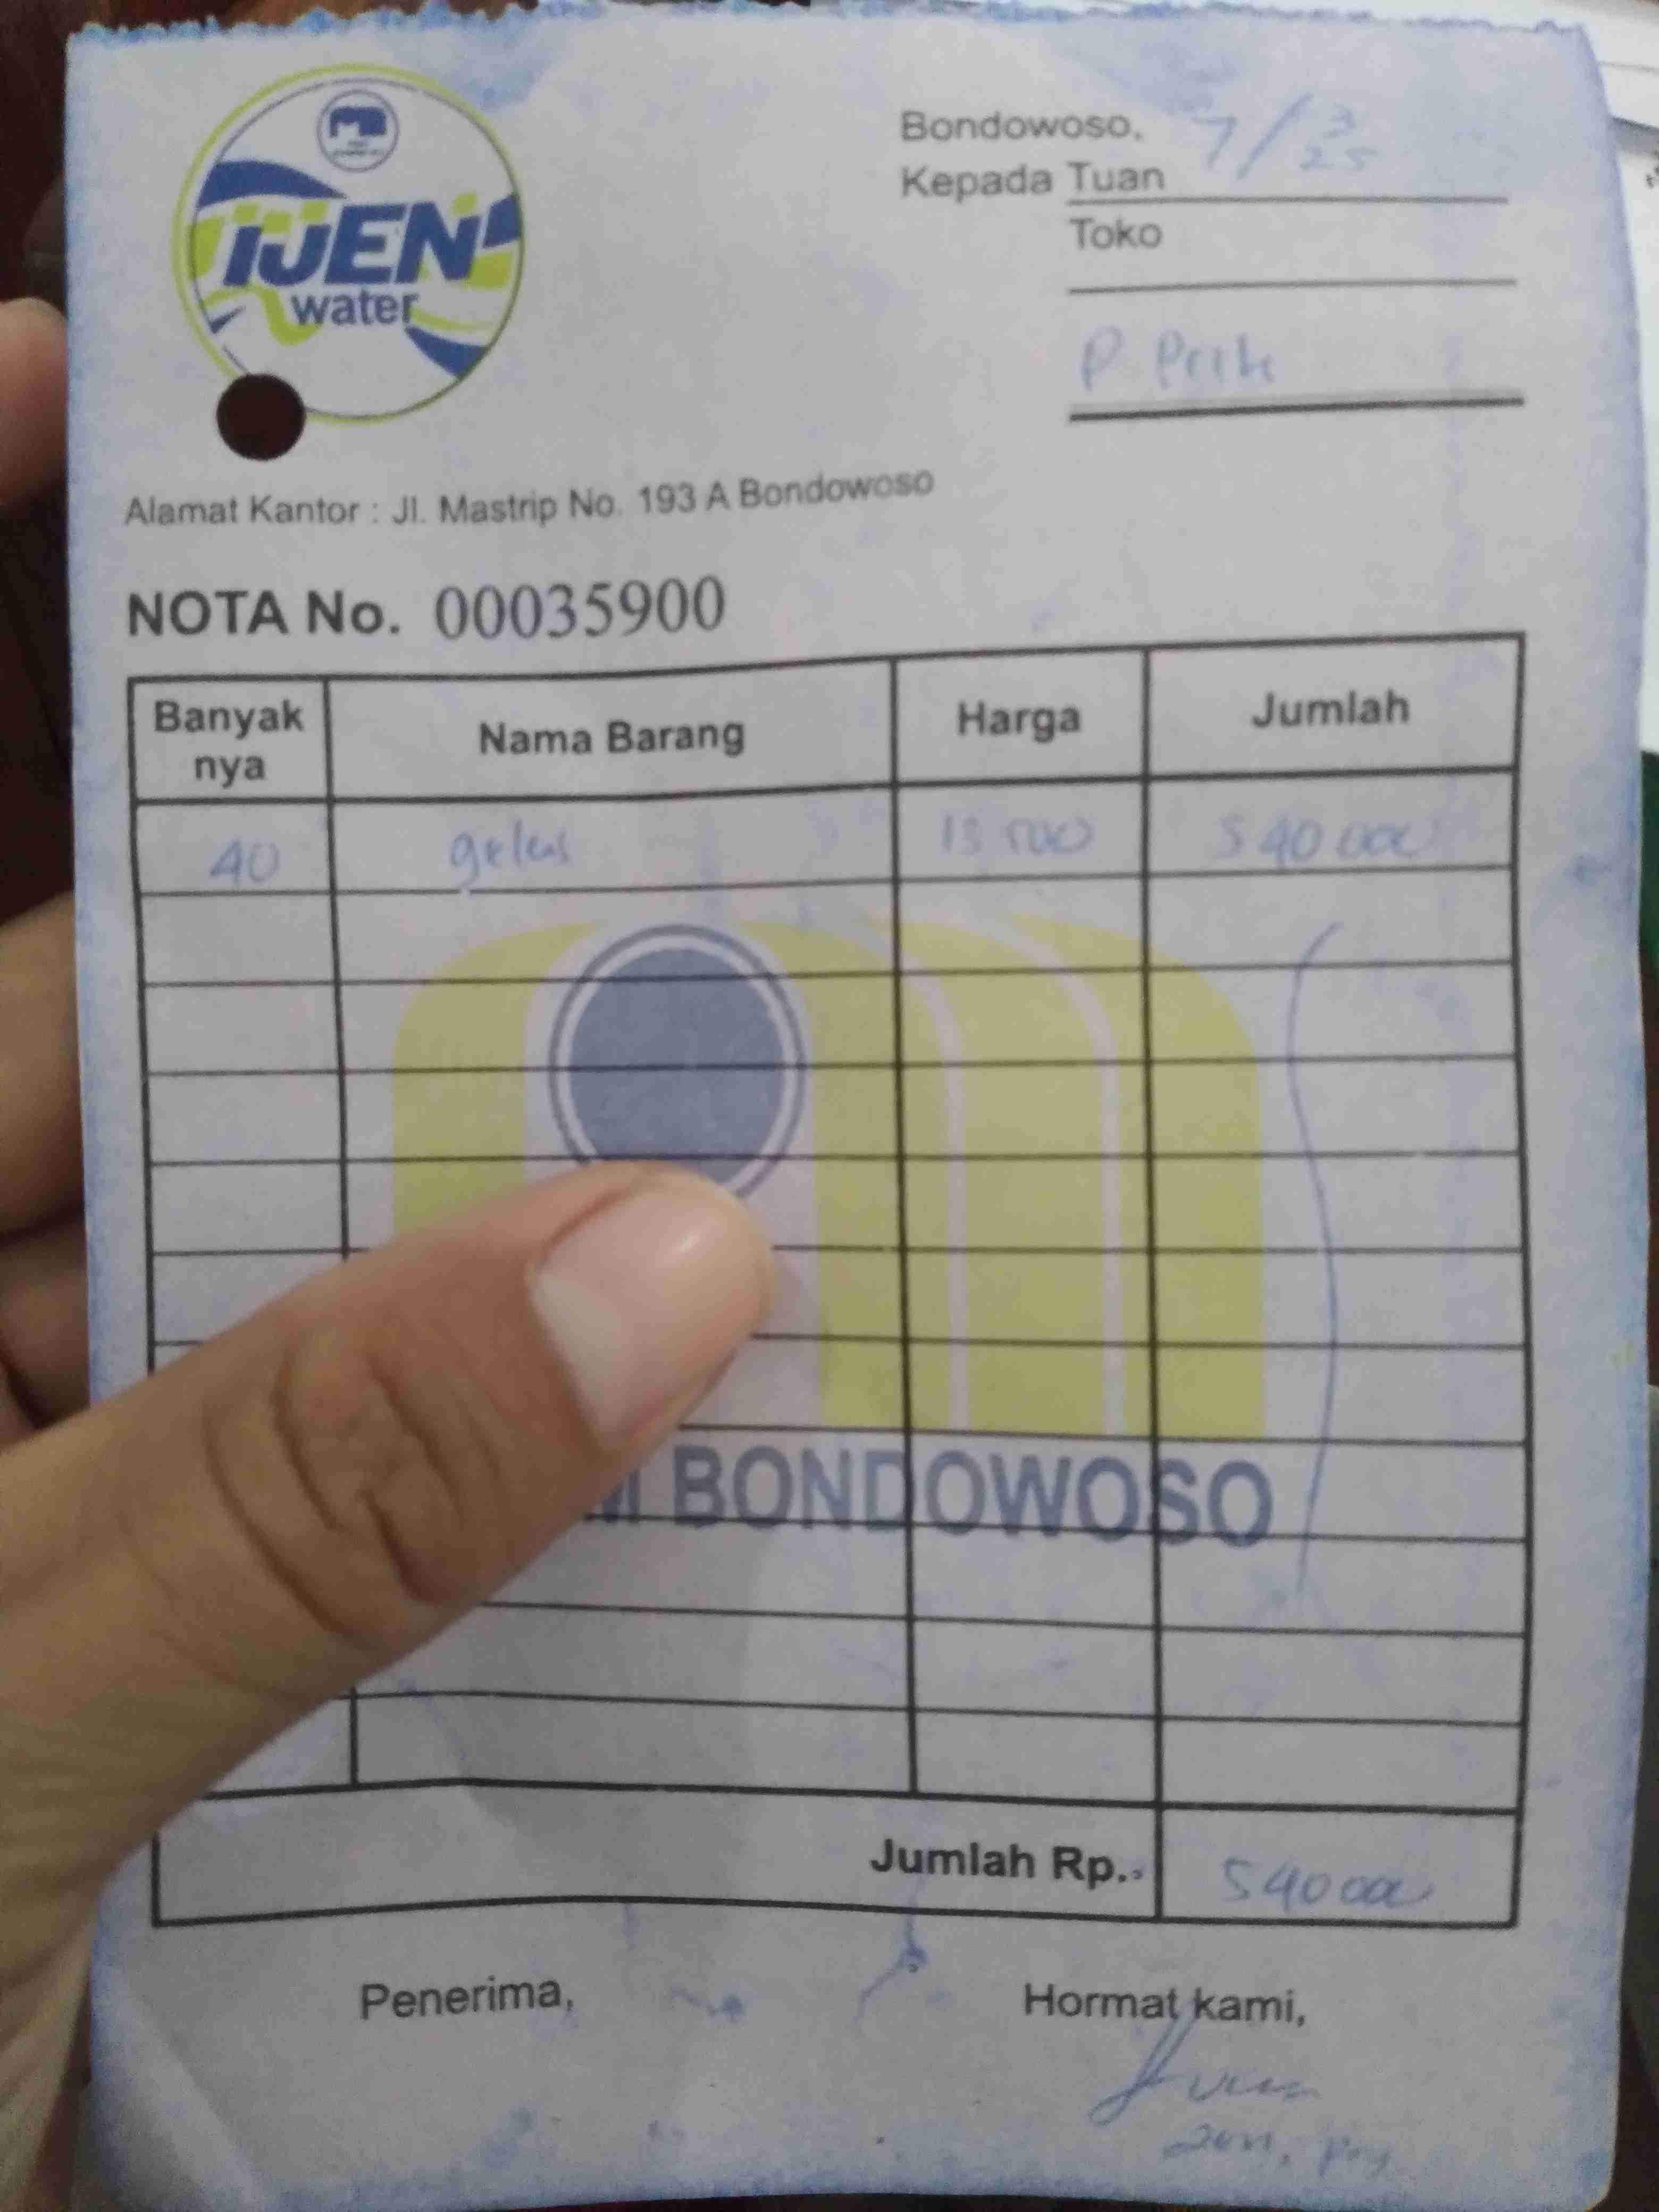 IJEN
water
Bondowoso, 7/3 25
Kepada Tuan
Toko
P
Alamat Kantor : Jl. Mastrip No. 193 A Bondowoso
NOTA No. 00035900
Banyak nya Nama Barang Harga Jumlah
40 gelas 13 500 540 000
M BONDOWOSO
Jumlah Rp.- 540 000
Penerima, Hormat kami,